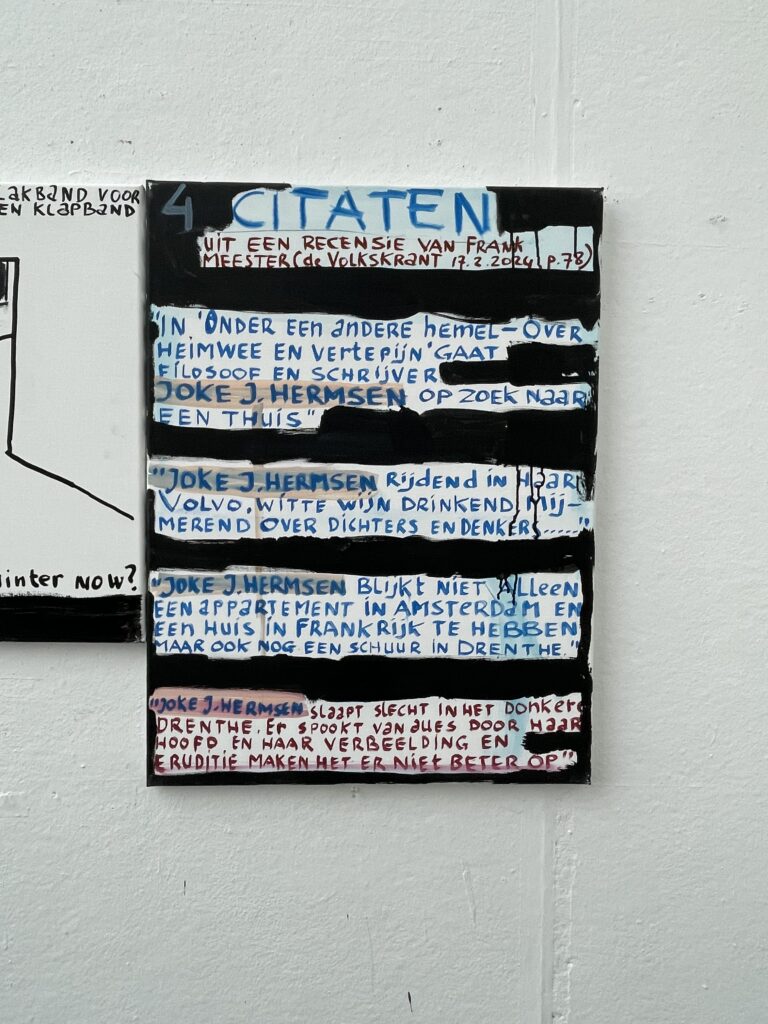 LAKBAND VOOR
EN KLAPBAND
inter now?
4 CITATEN
UIT EEN RECENSIE VAN FRANK
MEESTER (de VOLKSKRANT 17.2.2024 p.78)
"IN 'ONDER EEN andere hemel - OVER
HEIMWEE EN vertepijn' GAAT
FILOSOOF EN SCHRIJVER
JOKE J. HERMSEN OP ZOEK NAAR
EEN THUIS"
"JOKE J. HERMSEN Rijdend in HAAR
VOLVO, WITTE WIJN DRINKEND, MIJ-
MEREND OVER DICHTERS EN DENKERS....."
"JOKE J. HERMSEN BLIJKT NIET ALLeen
EEN appartement in AMSTERDAM EN
EEN HUIS in FRANKRIJK TE HEBBEN
MAAR OOK NOG EEN SCHUUR IN DRENTHE."
"JOKE J. HERMSEN SLAAPT SLECHT IN HET DONKERE
DRENTHE. Er SPOOKT VAN alles DOOR HAAR
HOOFD EN HAAR VERBEELDING EN
ERUDITIE MAKEN HET ER NIET BETER OP."